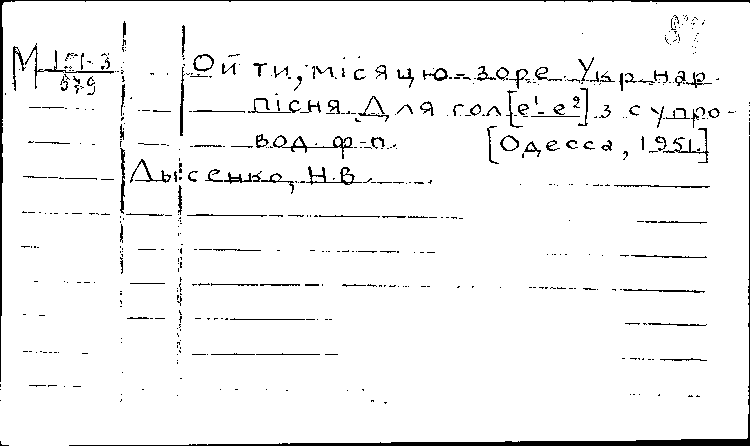 М 151-3
579
Ой ти, місяцю-зоре Укр. нар.
пісня. Для гол [e¹-e²] з супро-
вод. ф-п. [Одесса, 1951.]
Лысенко, Н.В.